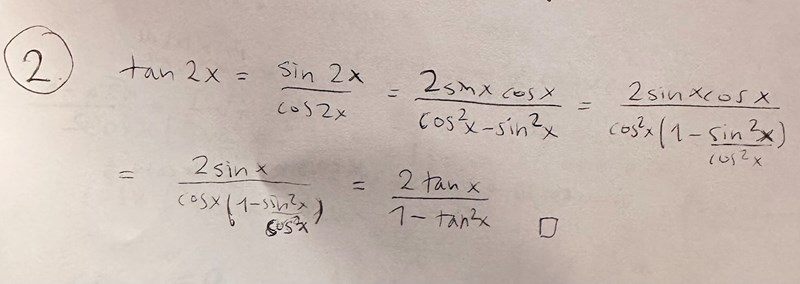 ② tan 2x = \frac{sin 2x}{cos 2x} = \frac{2 sin x cos x}{cos²x - sin²x} = \frac{2 sin x cos x}{cos²x (1 - \frac{sin²x}{cos²x})}
= \frac{2 sin x}{cos x (1 - \frac{sin²x}{cos²x})} = \frac{2 tan x}{1 - tan²x} □